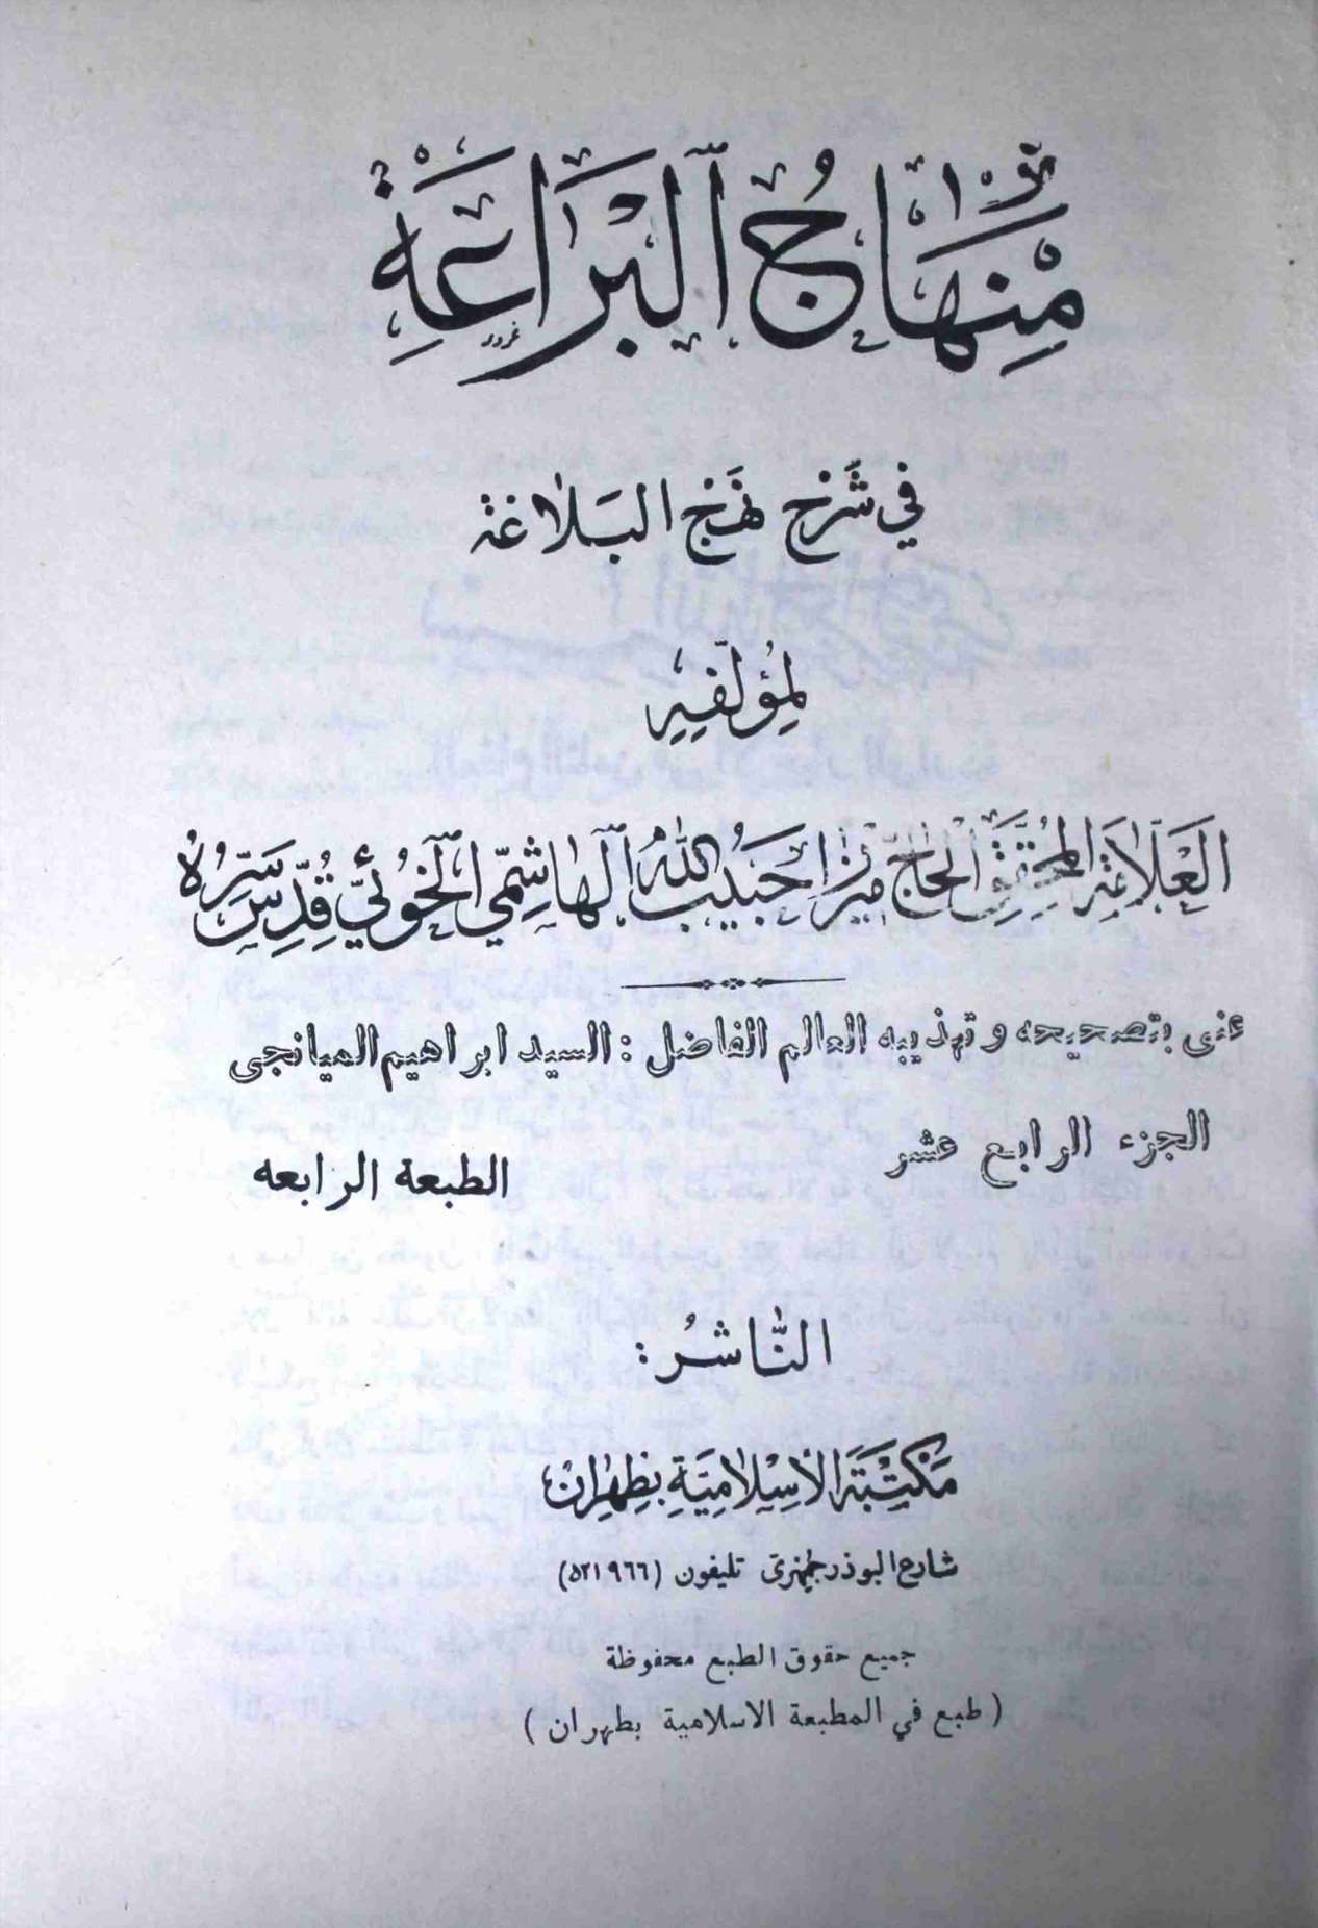 مِنْهَاجُ ٱلْبَرَاعَةِ
في شَرْحِ نَهْجِ البَلاغة
لِمُؤَلِّفِهِ
العَلَّامَةِ المُحَقِّقِ الحَاجّ ميرزا حَبيبُ اللهِ الهاشِمِّي الخُوئيّ قُدِّسَ سِرُّهُ
عنى بتصحيحه و تهذيبه العالم الفاضل : السيد ابراهيم الميانجى
الجزء الرابع عشر
الطبعة الرابعه
النَّاشرُ :
مَكتَبَة الاِسْلامِيَّةِ بِطِهْرانْ
شارع البوذرجمهرى تليفون (٥٢١٩٦٦)
جميع حقوق الطبع محفوظة
( طبع في المطبعة الاسلامية بطهران )